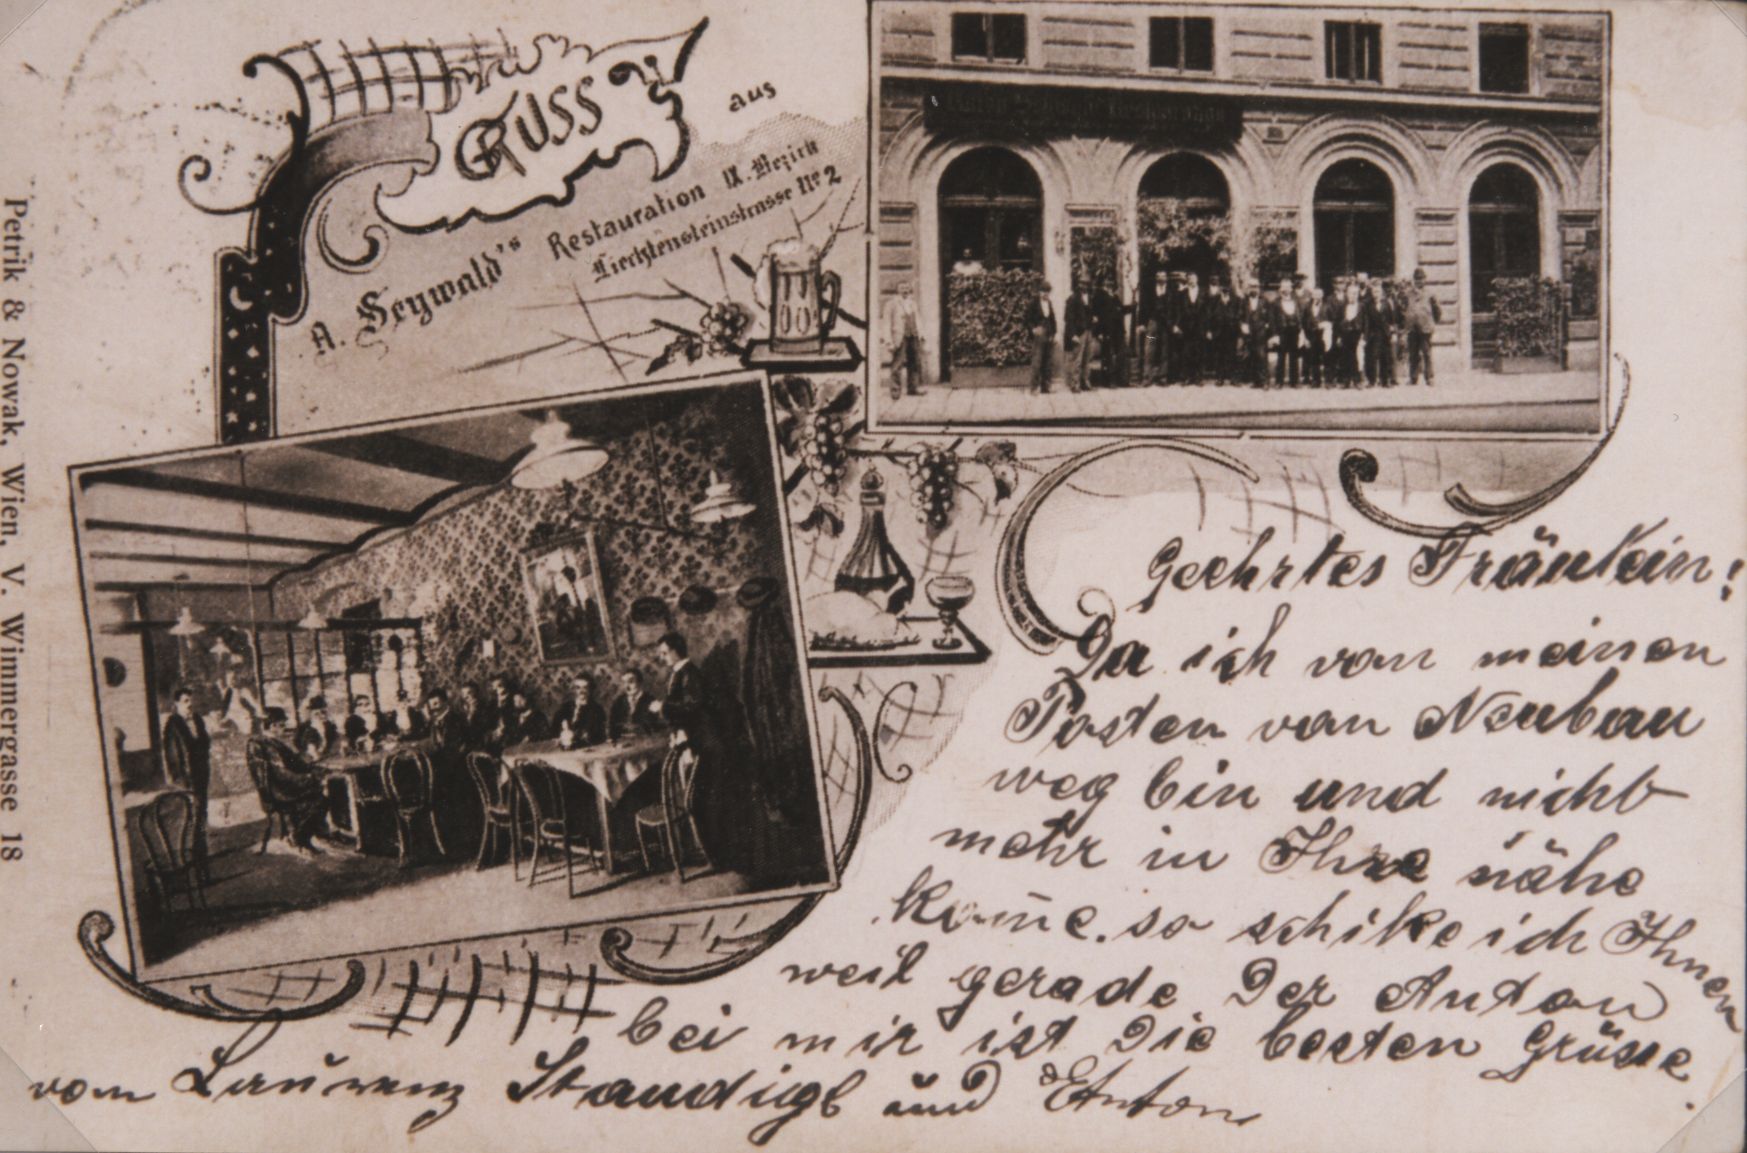 GRUSS
aus
A. Seywald's Restauration IX. Bezirk
Liechtensteinstrasse No 2
Petrik & Nowak, Wien, V. Wimmergasse 18
Geehrtes Fräulein!
Da ich von meinen
Posten von Neubau
weg bin und nicht
mehr in Ihre nähe
kom̄e. so schike ich Ihnen
weil gerade Der Anton
bei mir ist Die besten Grüsse.
vom Laurenz Staudigl und Anton